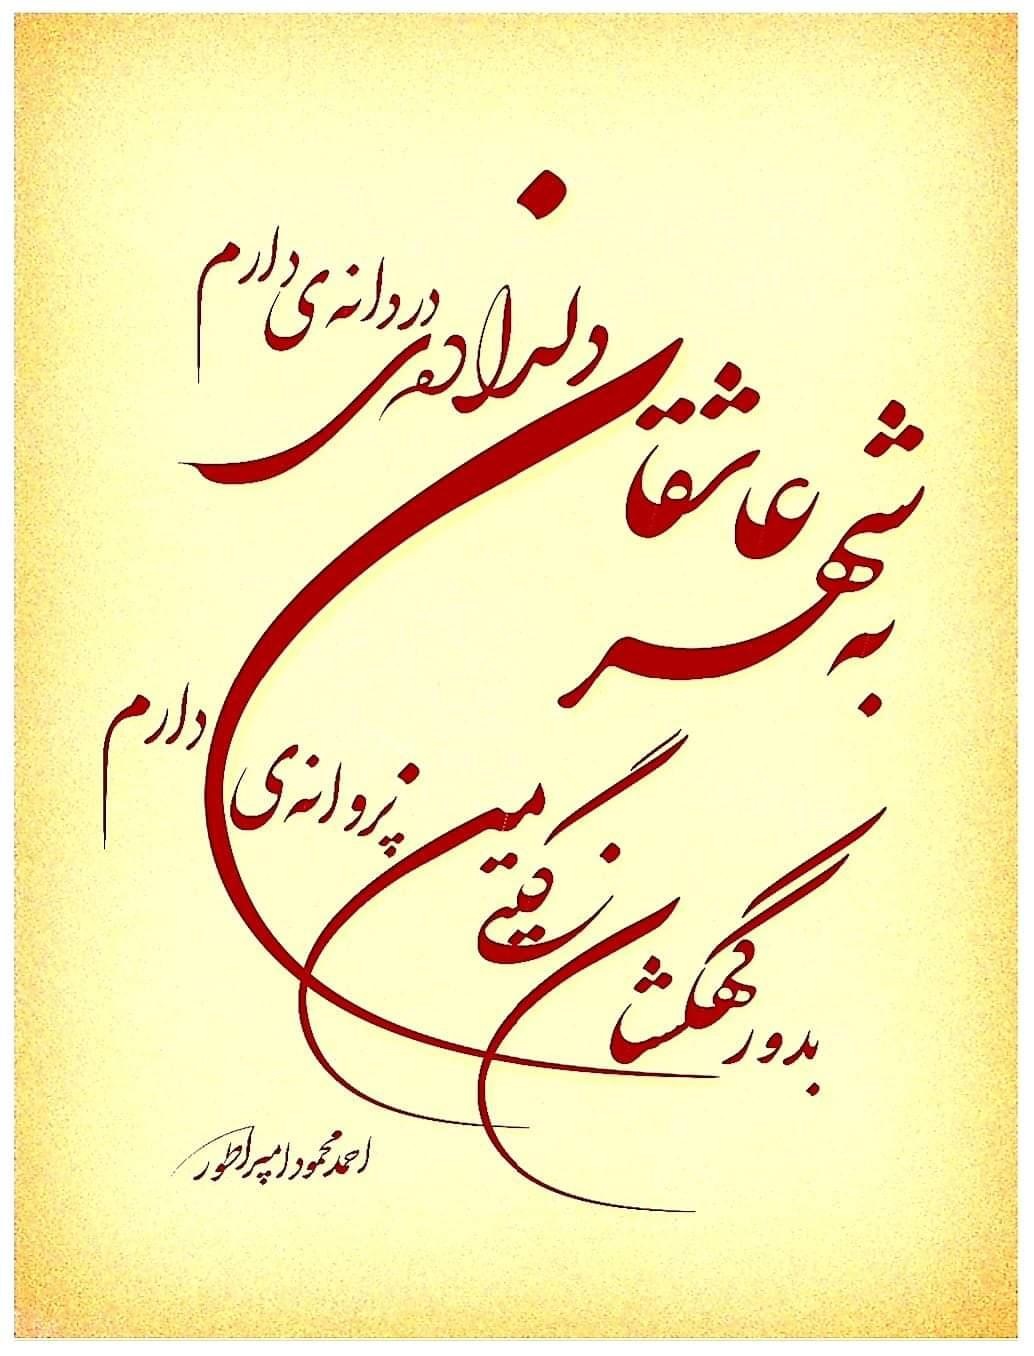 به شهر عاشقان دلداده‌ی دردانه‌ی دارم
بدور کهکشان زگیتی مین پروانه‌ی دارم
احمد محمود امپراطور